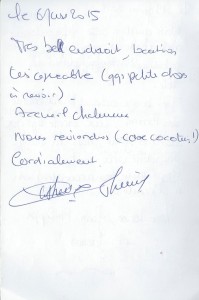 le 6 juin 2015
Très bel endroit, location
très agréable (qqs petites choses
à revoir).
Accueil chaleureux
Nous reviendrons
Cordialement.